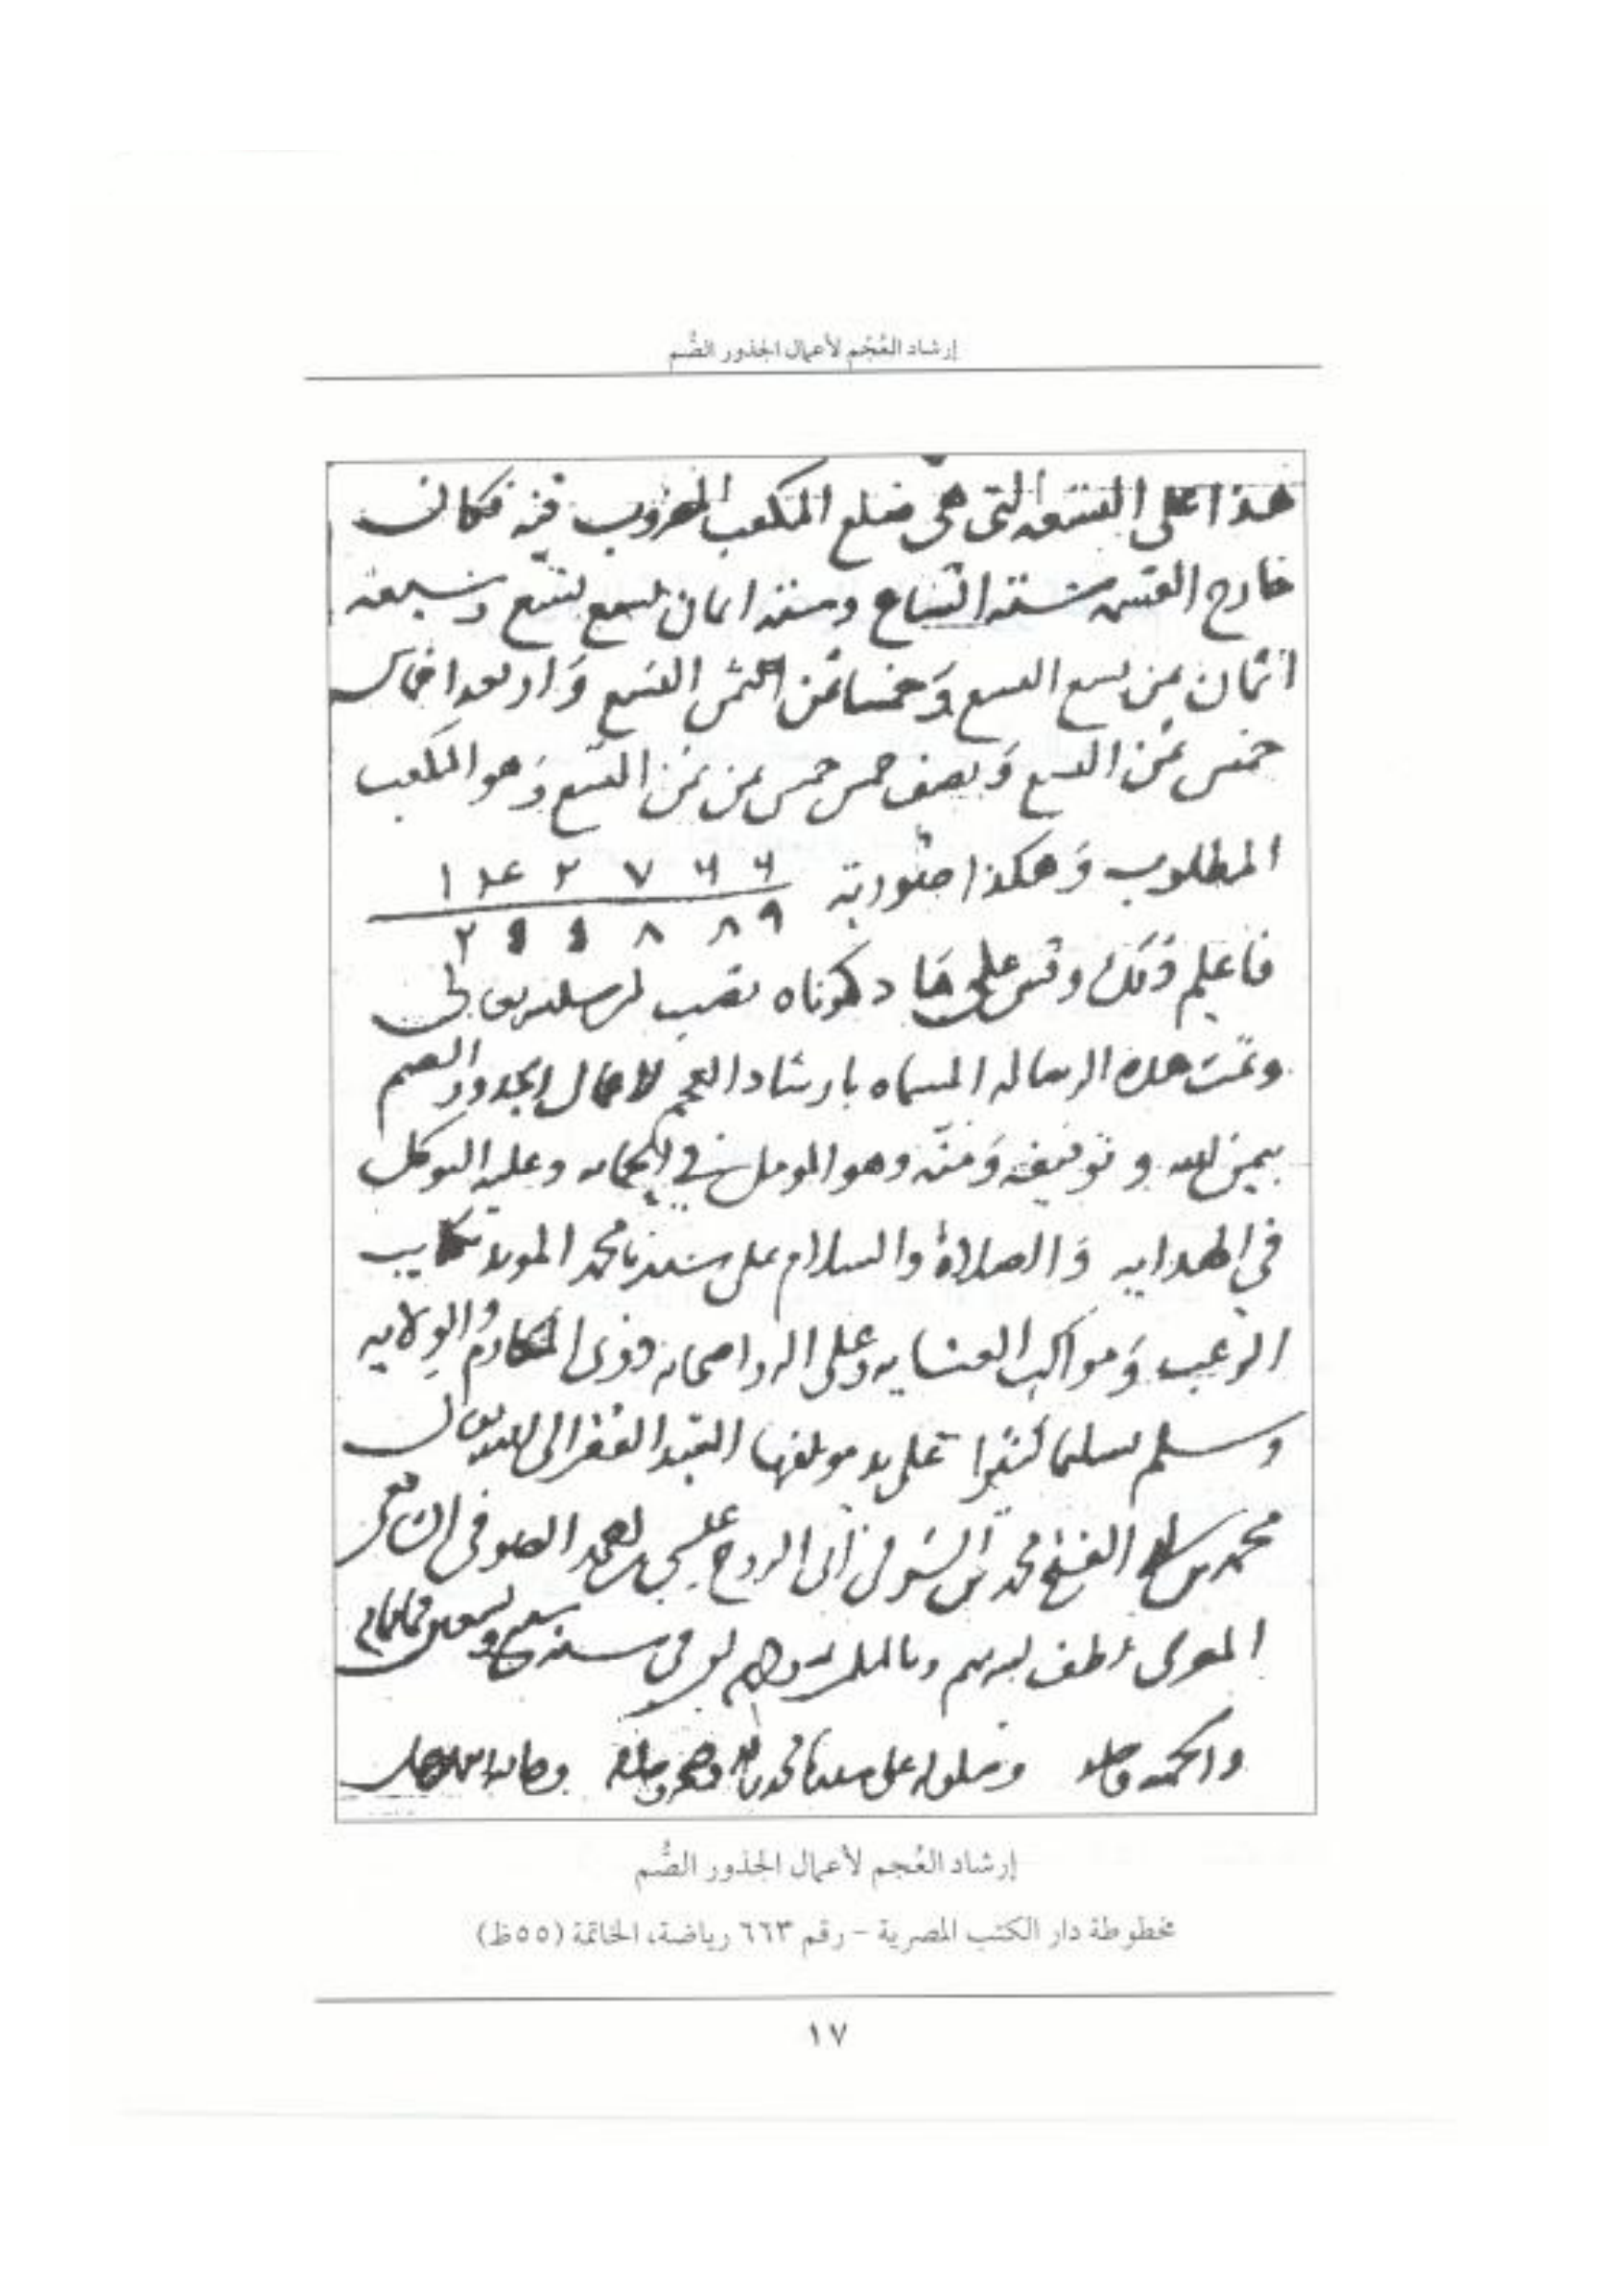 إرشاد العُجْم لأعمال الجذور الصُّم
هذا على التسعه التى هى ضلع المكعب المضروب فيه فكان
خارج القسمه ستة اتساع وستة اثمان تسع تسع وسبعة
اثمان ثمن تسع التسع وخمسا ثمن الثمن التسع وَاربعة اخماس
خمس ثمن التسع وَنصف خمس خمس ثمن ثمن التسع وَهو المكعب
المطلوب وَهكذا صورته ٦ ٦ ٧ ٢
٩ ٨ ٨
فاعلم ذلك وقس على ما ذكرناه تصب
وتمت هذه الرساله المسماه بارشاد العجم لاعمال الجذور الصم
بيمن الله وتوفيقه وَمنّه وهو المومل في وعليه التوكل
في الهدايه وَالصلاة والسلام على سيدنا محمد المويد بكتايب
الرعب وَمواكب العنايه وعلى اله واصحابه ذوى المكارم والولايه
وسلم تسليما كثيرا على يد مولفها العبد الفقير الى الله
محمد بن ابى الفتح محمد بن الشرفى ابى الروح عيسى بن احمد الصوفى الشافعى
المصرى لطف الله بهم فى سنه
والحمد لله وحده وصلوته على سيدنا محمد
إرشاد العُجم لأعمال الجذور الصُّم
مخطوطة دار الكتب المصرية - رقم ٦٦٣ رياضة، الخاتمة (٥٥ظ)
١٧